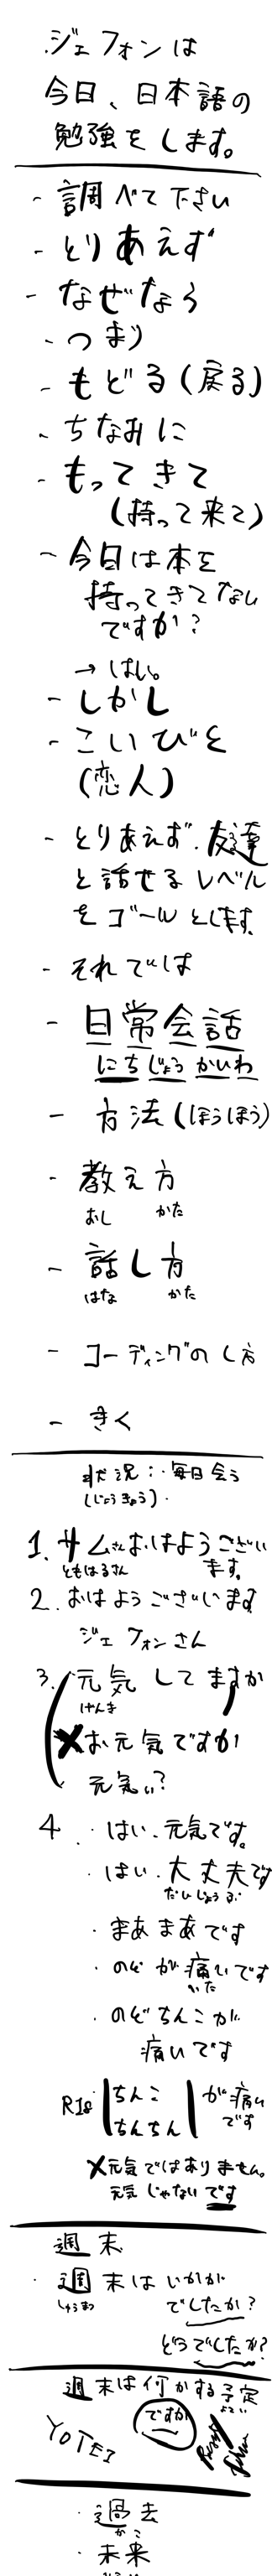 .ジェフォンは
今日、日本語の
勉強をします。
- 調べて下さい
- とりあえず
- なぜなら
- つまり
- もどる(戻る)
- ちなみに
- もってきて
(持って来て)
- 今日は本を
持ってきてない
ですか?
→ はい。
- しかし
- こいびと
(恋人)
- とりあえず、友達
と話せるレベル
をゴールとします。
- それでは
- 日常会話
にちじょうかいわ
- 方法(ほうほう)
- 教え方
おし かた
- 話し方
はな かた
- コーディングのし方
- きく
状況:毎日会う
(じょうきょう)
1. サムさんおはようござい
ともはるさん ます。
2. おはようございます
ジェフォンさん
3. 元気してますか
げんき
×お元気ですか
元気い?
4 . はい、元気です。
・はい、大丈夫です
だいじょうぶ
・まあまあです
・のどが痛いです
いた
・のどちんこが
痛いです
R18 ちんこ が痛い
ちんちん です
×元気ではありません。
元気じゃないです
週末
・週末はいかが
しゅうまつ でしたか?
どうでしたか?
週末は何かする予定
よてい
ですか
YOTEI
・過去
かこ
・未来